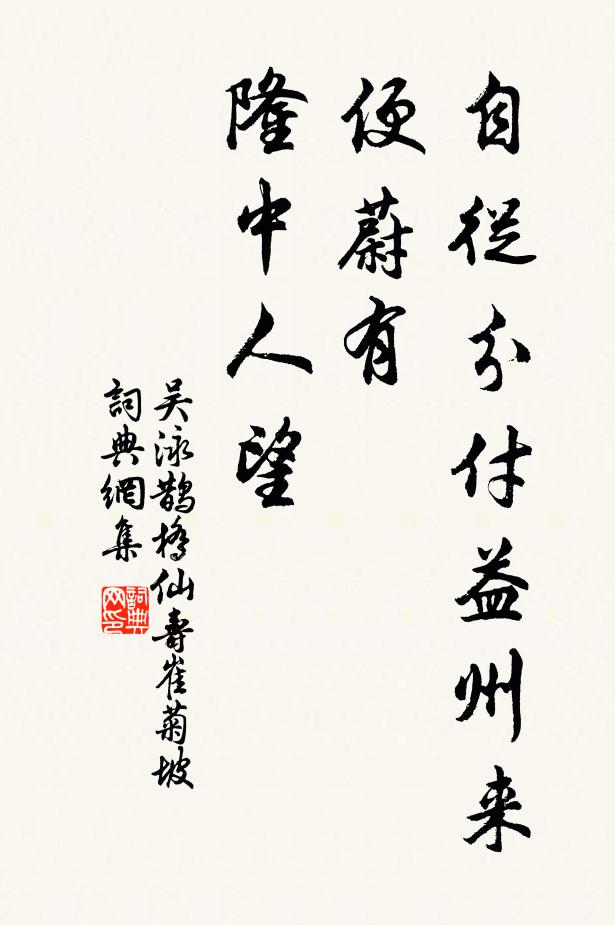 自從分付益州来
便蔚有
隆中人望
吴泳鵲橋仙壽崔菊坡
詞典網集
詞典网印